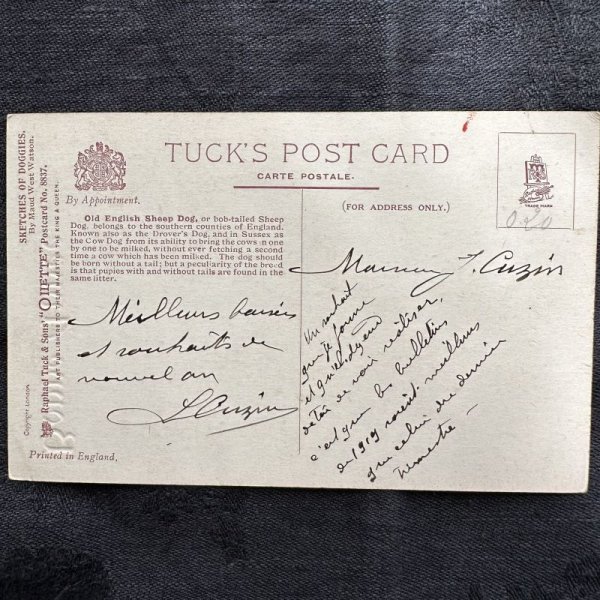 TUCK'S POST CARD
CARTE POSTALE.
(FOR ADDRESS ONLY.)
By Appointment.
TRADE MARK
SKETCHES OF DOGGIES.
By Maud West Watson.
Raphael Tuck & Sons' "OILETTE" Postcard No. 8837.
ART PUBLISHERS TO THEIR MAJESTIES THE KING & QUEEN.
Copyright London.
Printed in England,
Old English Sheep Dog, or bob-tailed Sheep
Dog, belongs to the southern counties of England.
Known also as the Drover's Dog, and in Sussex as
the Cow Dog from its ability to bring the cows in one
by one to be milked, without ever fetching a second
time a cow which has been milked. The dog should
be born without a tail; but a peculiarity of the breed
is that pupies with and without tails are found in the
same litter.
Meilleurs baisers
et souhaits de
nouvel an
L Cuzin
020
J. Cuzin
Un souhait
que je forme
et
de voir réaliser,
c'est que les bulletins
de 1919 soient meilleurs
que celui du dernier
trimestre -